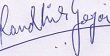 Randhir Gogoi